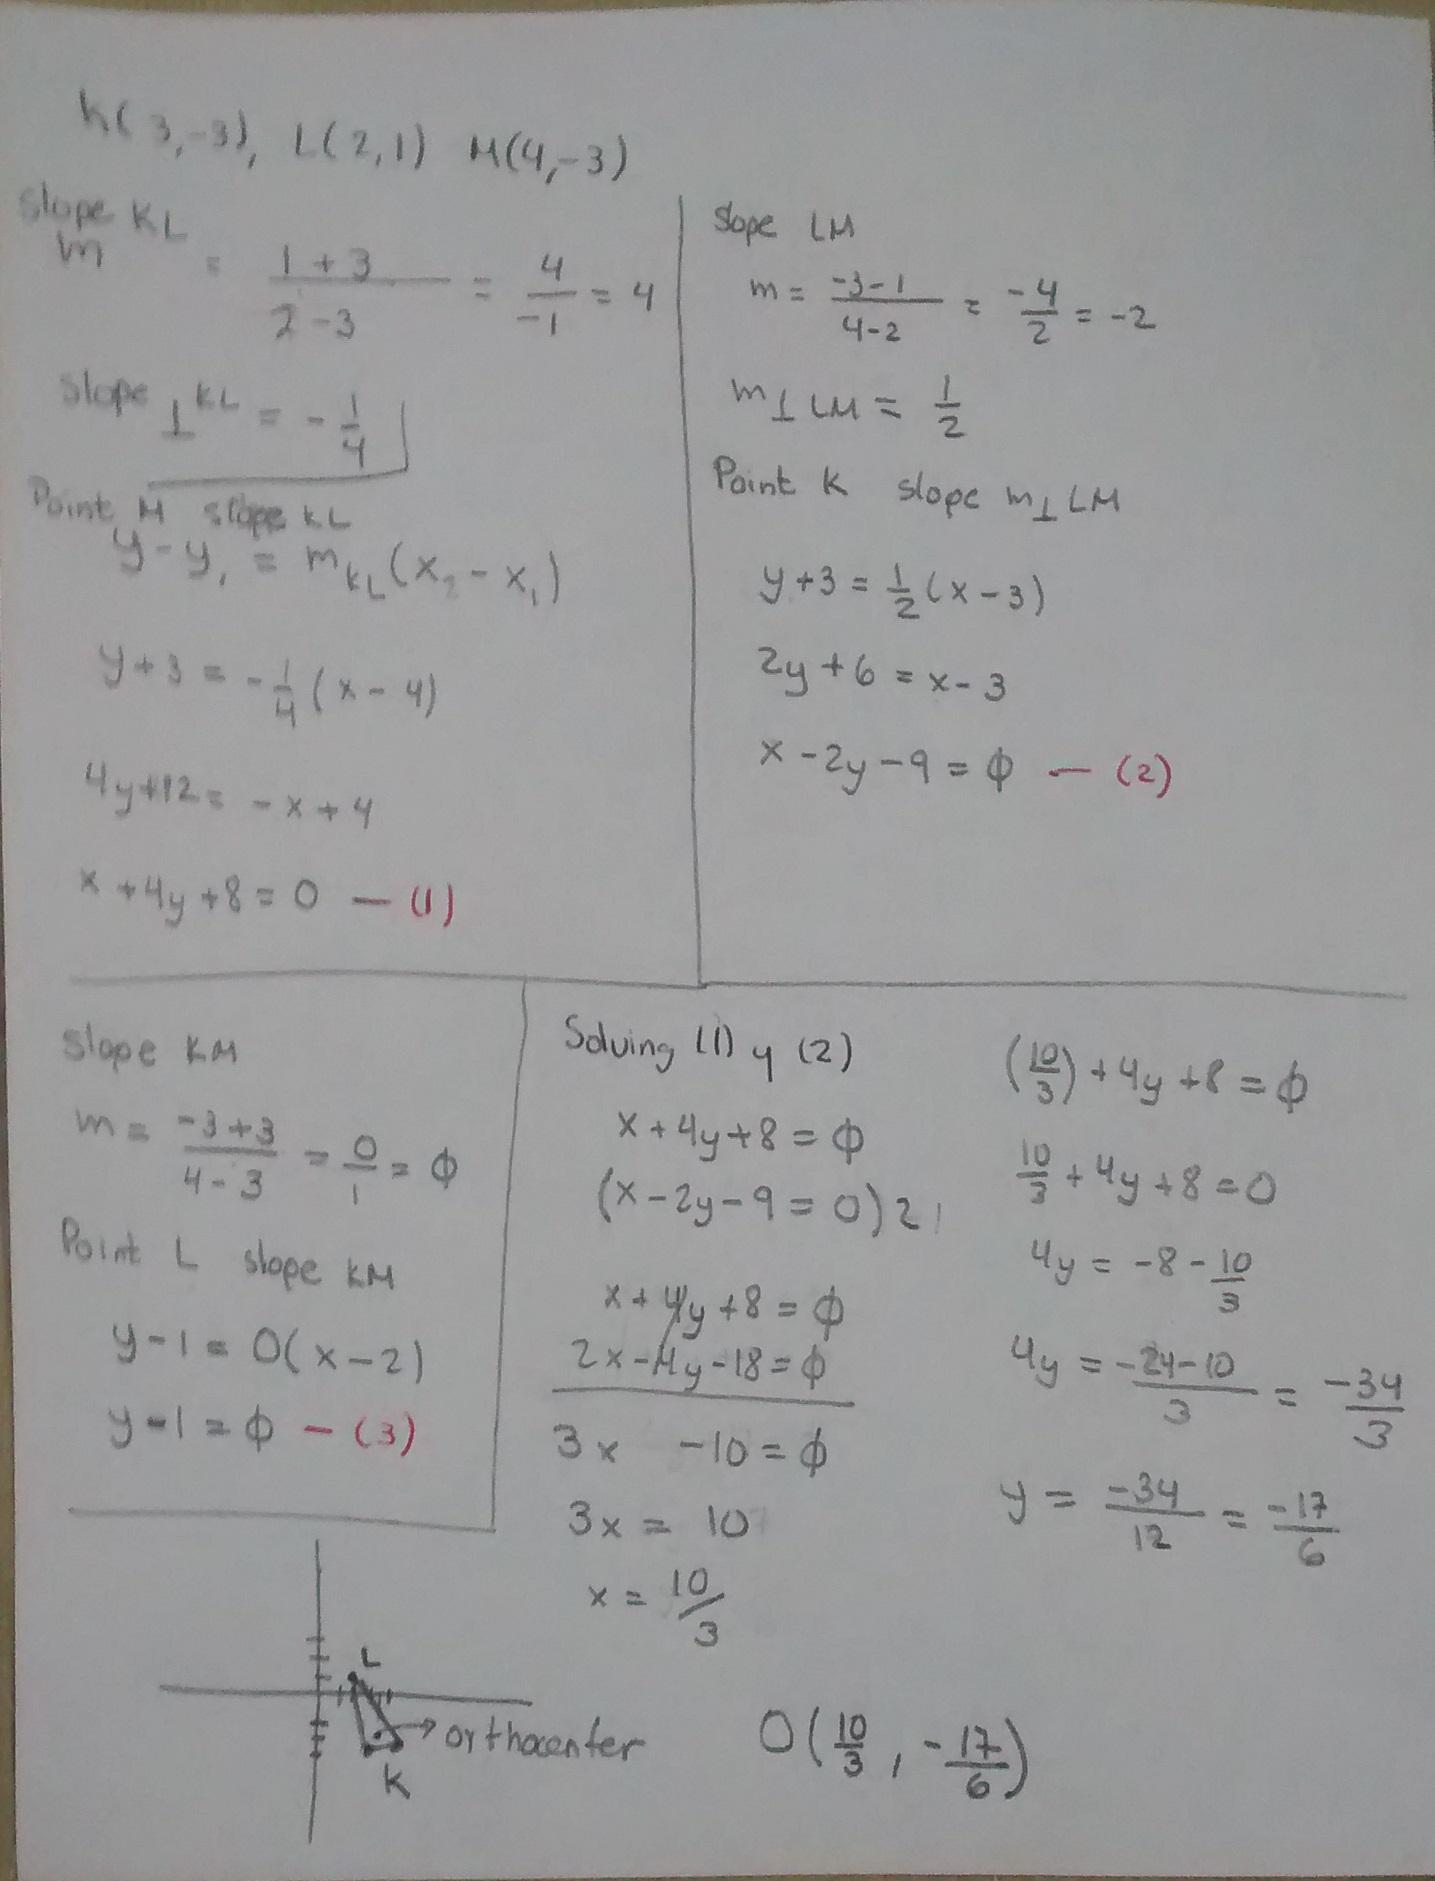 K(3,-3), L(2,1) M(4,-3)
Slope KL
m = \frac{1+3}{2-3} = \frac{4}{-1} = 4
Slope ⊥ KL = -\frac{1}{4}
Point M slope KL
y-y₁ = m_{KL}(x₂-x₁)
y+3 = -\frac{1}{4}(x-4)
4y+12 = -x+4
x+4y+8=0 — (1)
Slope LM
m = \frac{-3-1}{4-2} = \frac{-4}{2} = -2
m⊥LM = \frac{1}{2}
Point K slope m⊥LM
y+3 = \frac{1}{2}(x-3)
2y+6 = x-3
x-2y-9=ϕ — (2)
Slope KM
m = \frac{-3+3}{4-3} = \frac{0}{1} = ϕ
Point L slope KM
y-1 = 0(x-2)
y-1=ϕ — (3)
Solving (1) y (2)
x+4y+8=ϕ
(x-2y-9=0)2
x+4y+8=ϕ
2x-4y-18=ϕ
3x -10=ϕ
3x = 10
x = 10/3
(\frac{10}{3})+4y+8=ϕ
\frac{10}{3}+4y+8=0
4y = -8-\frac{10}{3}
4y = \frac{-24-10}{3} = \frac{-34}{3}
y = \frac{-34}{12} = \frac{-17}{6}
L
→ orthocenter
K
O(\frac{10}{3}, -\frac{17}{6})